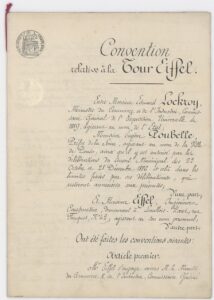 Convention
relative à la Tour Eiffel.
Entre Monsieur Edouard Lockroy,
Ministre du Commerce et de l'Industrie, Commissaire
Général de l'Exposition Universelle de
1889, agissant au nom de l'Etat,
Monsieur Eugène Poubelle,
Préfet de la Seine, agissant au nom de la Ville
de Paris, ainsi qu'il y est autorisé par les
délibérations du Conseil Municipal des 22
Octobre et 28 Décembre 1886 et cela dans les
limites fixées par ces délibérations, qui
resteront annexées aux présentes,
D'une part,
Et Monsieur Eiffel, Ingénieur-
Constructeur, demeurant à Levallois-Perret, rue
Fouquet, N° 42, agissant en son nom personnel,
D'autre part,
Ont été faites les conventions suivantes:
Article premier.
Mr Eiffel s'engage envers M. le Ministre
du Commerce & de l'Industrie, Commissaire Général